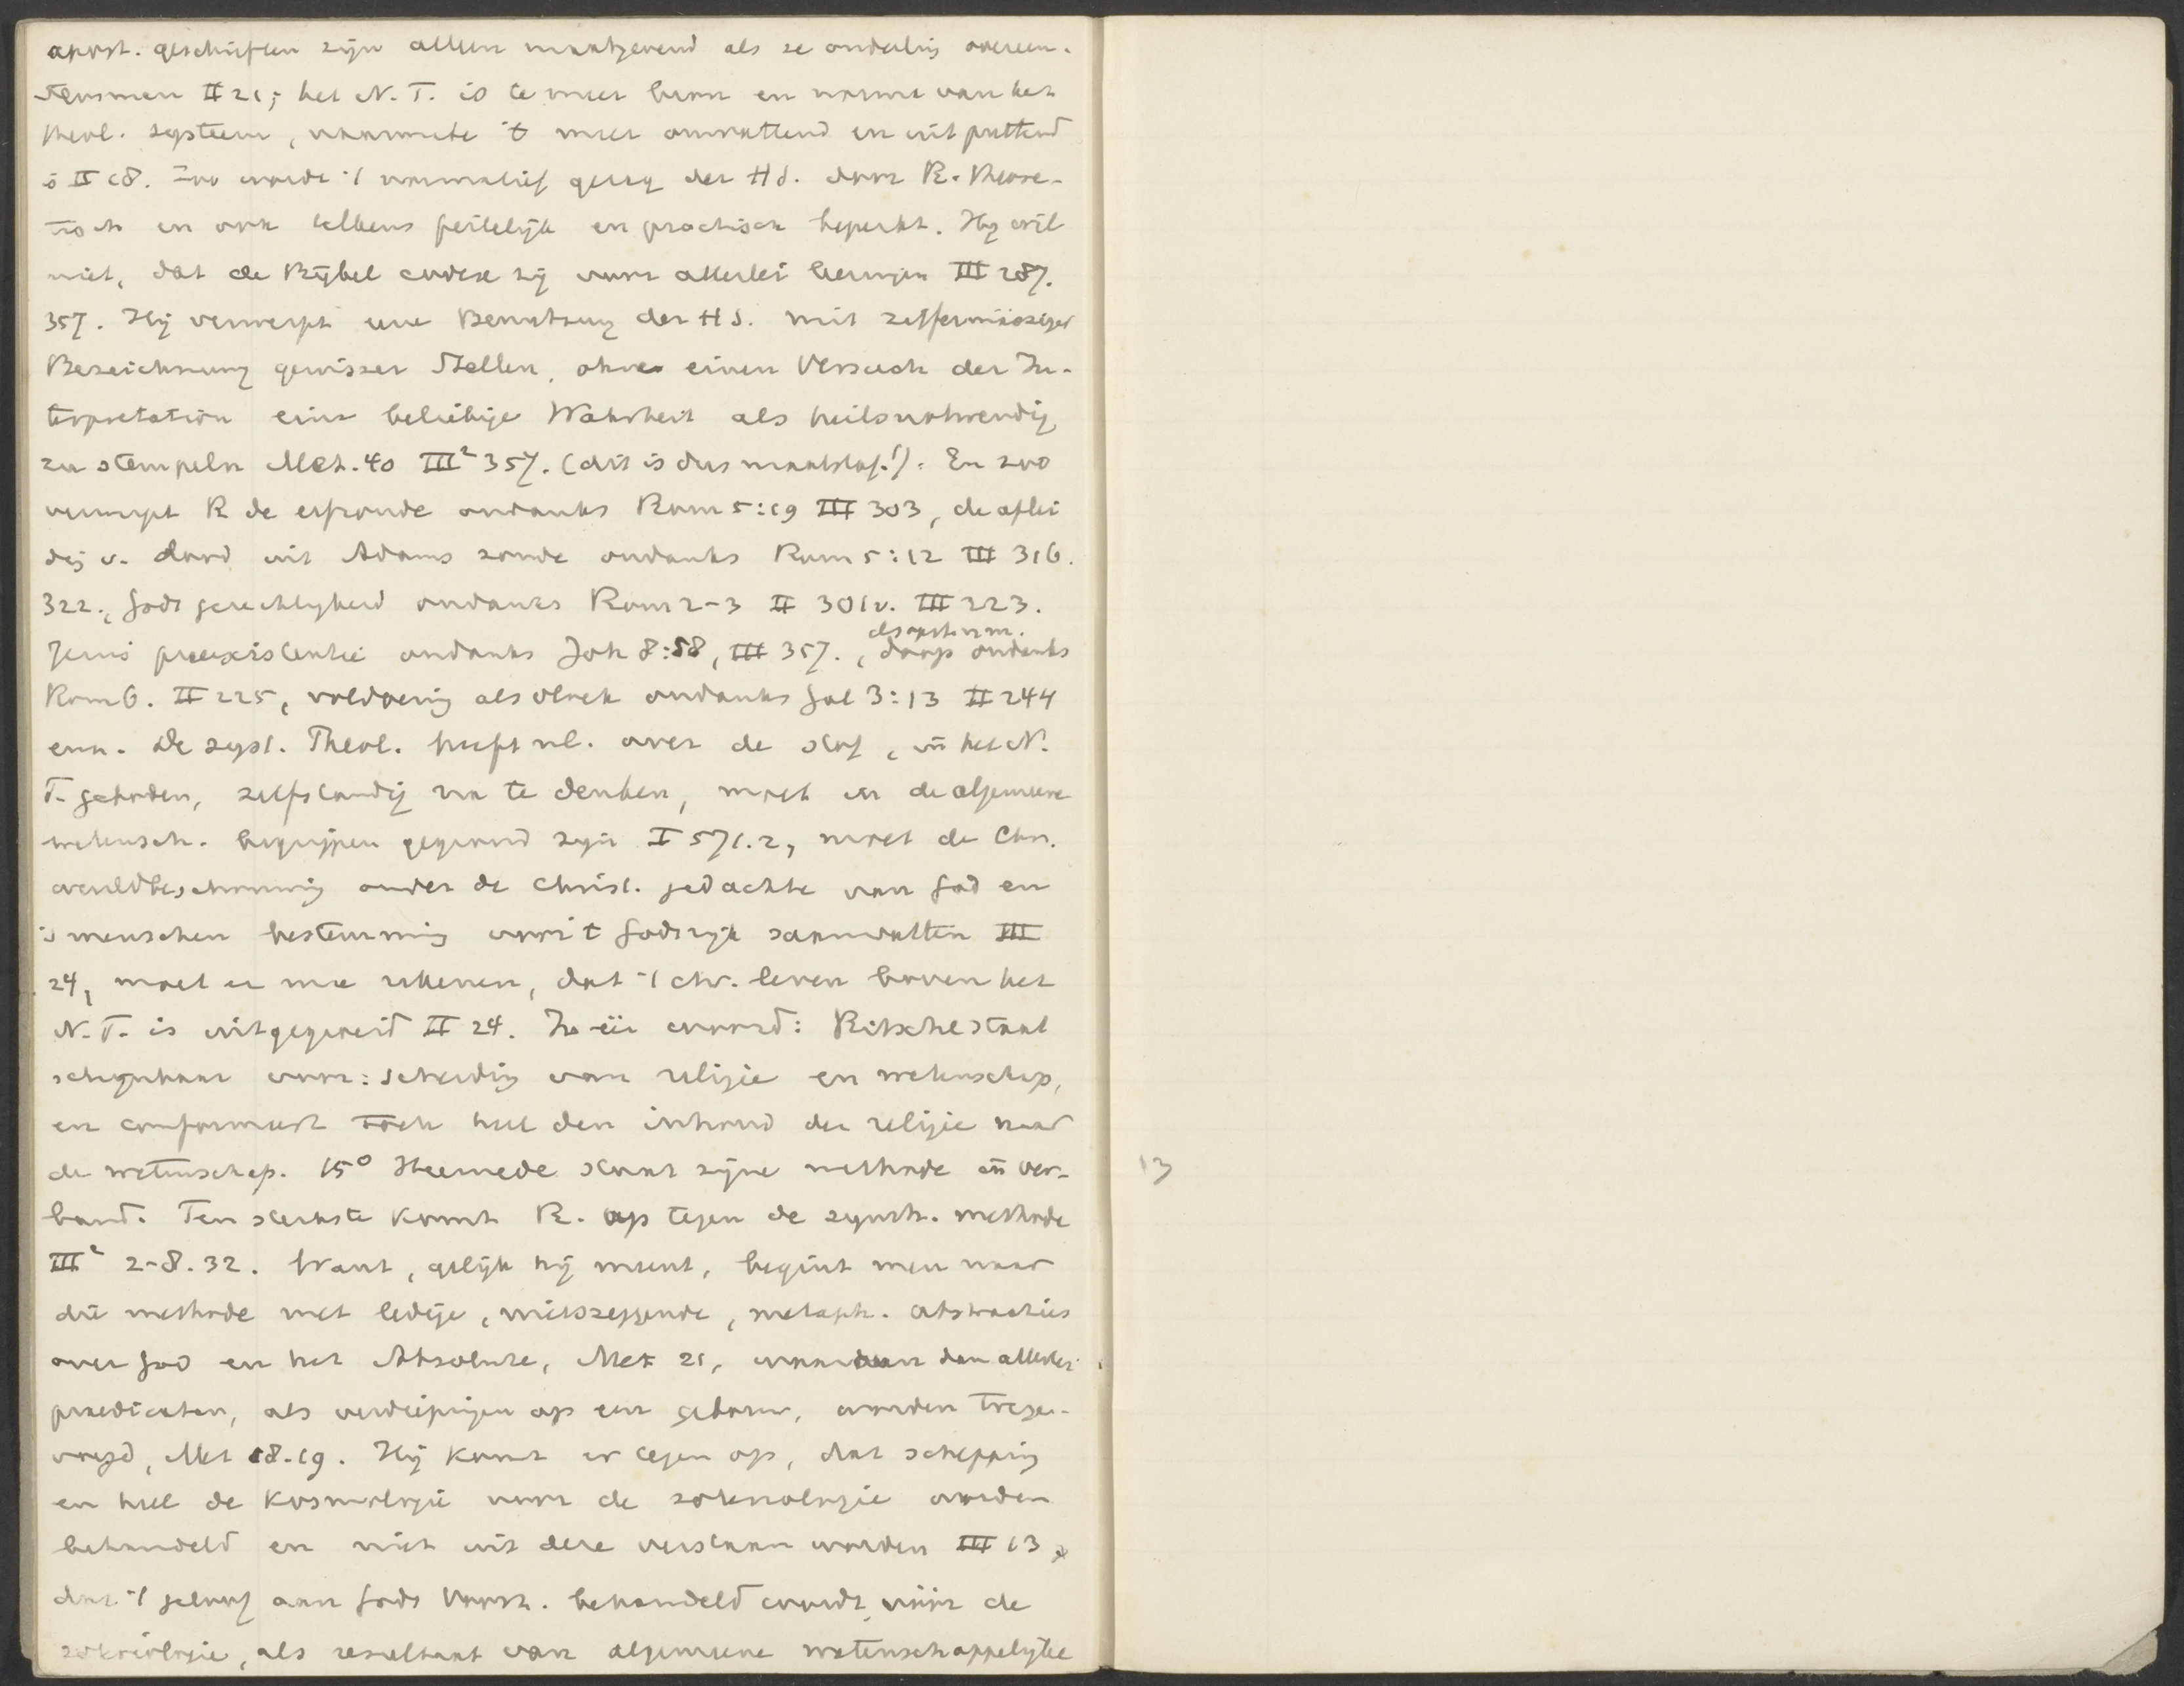 apost. geschriften zijn alleen maatgevend als ze onderling overeen-
stemmen II 21; het N. T. is te meer bron en norma van het
theol. systeem, naarmate 't meer omvattend en uitputtend
is II 18. Zoo wordt 't normatief gezag der H S. door R. theore-
tisch en ook telkens feitelijk en practisch beperkt. Hij wil
niet, dat de Bijbel codex zij voor allerlei leeringen III 287.
357. Hij verwerpt eene Benutzung der H S. mit ziffermässiger
Bezeichnung gewisser Stellen, ohne einen Versuch der In-
terpretation eine beliebige Wahrheit als heilsnothwendig
zu stempeln Met. 40 III² 357. (dit is dus maatstaf!). En zoo
verwerpt R de erfzonde ondanks Rom 5:19 III 303, de aflei
dig v. dood uit Adams zonde ondanks Rom 5:12 III 316.
322., Gods gerechtigheid ondanks Rom 2-3 II 301v. III 223.
Jezus praeexistentie ondanks Joh 8:58, III 357., doop ondanks
Rom 6. II 225, voldoening als vloek ondanks Gal 3:13 II 244
enz. De syst. Theol. heeft nl. over de stof, in het N.
T. geboden, zelfstandig na te denken, moet in de algemeene
wetensch. begrippen gegrond zijn I 571.2, moet de Chr.
wereldbeschouwing onder de Christ. gedachte van God en
's menschen bestemming voor 't Godsrijk saamvatten III
24, moet er mee rekenen, dat 't chr. leven boven het
N. T. is uitgegroeid II 24. In één woord: Ritschl staat
schijnbaar voor: scheiding van religie en wetenschap,
en conformeert toch heel den inhoud der religie naar
de wetenschap. 15° Hiermede staat zijne methode in ver-
band. Ten sterkste komt R. op tegen de synth. methode
III² 2-8. 32. Want, gelijk hij meent, begint men naar
die methode met ledige, nietszeggende, metaph. abstracties
over God en het Absolute, Met 21, waaraan dan allerlei
praedicaten, als verdiepingen op een gebouw, worden toege-
voegd, Met 18-19. Hij komt er tegen op, dat schepping
en heel de kosmologie voor de soteriologie worden
behandeld en niet uit deze verstaan worden III 13,
dat 't geloof aan Gods Voorz. behandeld wordt vóór de
soteriologie, als resultaat van algemeene wetenschappelijke
13